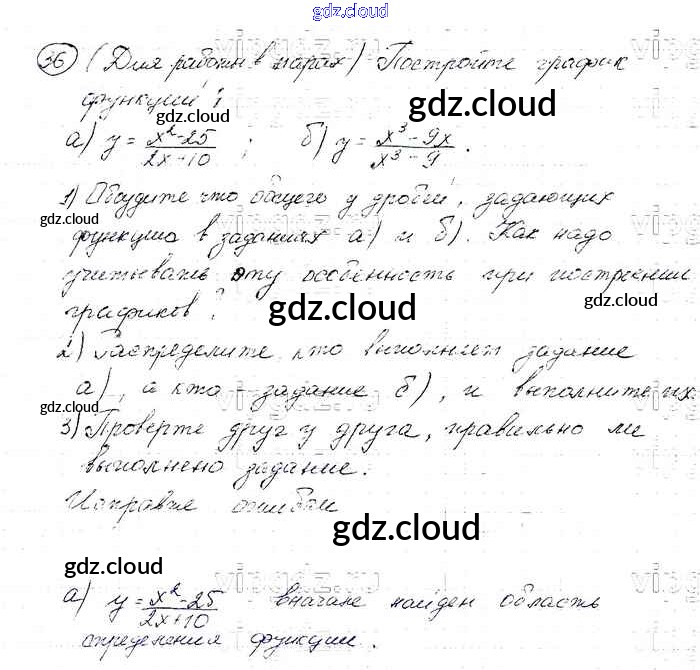 gdz.cloud
gdz.cloud
36 (Для работы в парах) Постройте график
функции:
gdz.cloud
gdz.cloud
а) y = x²-25 / 2x+10 ; б) y = x³-9x / x³-9 .
1) Обсудите что общего у дробей, задающих
gdz.cloud
функцию в заданиях а) и б). Как надо
учитывать эту особенность при построении
gdz.cloud
графиков?
gdz.cloud
2) Распределите, кто выполняет задание
а), а кто - задание б), и выполните их.
gdz.cloud
3) Проверте друг у друга, правильно ли
выполнено задание.
Исправте ошибки
gdz.cloud
gdz.cloud
а) y = x²-25 / 2x+10 вначале найдем область
определения функции.